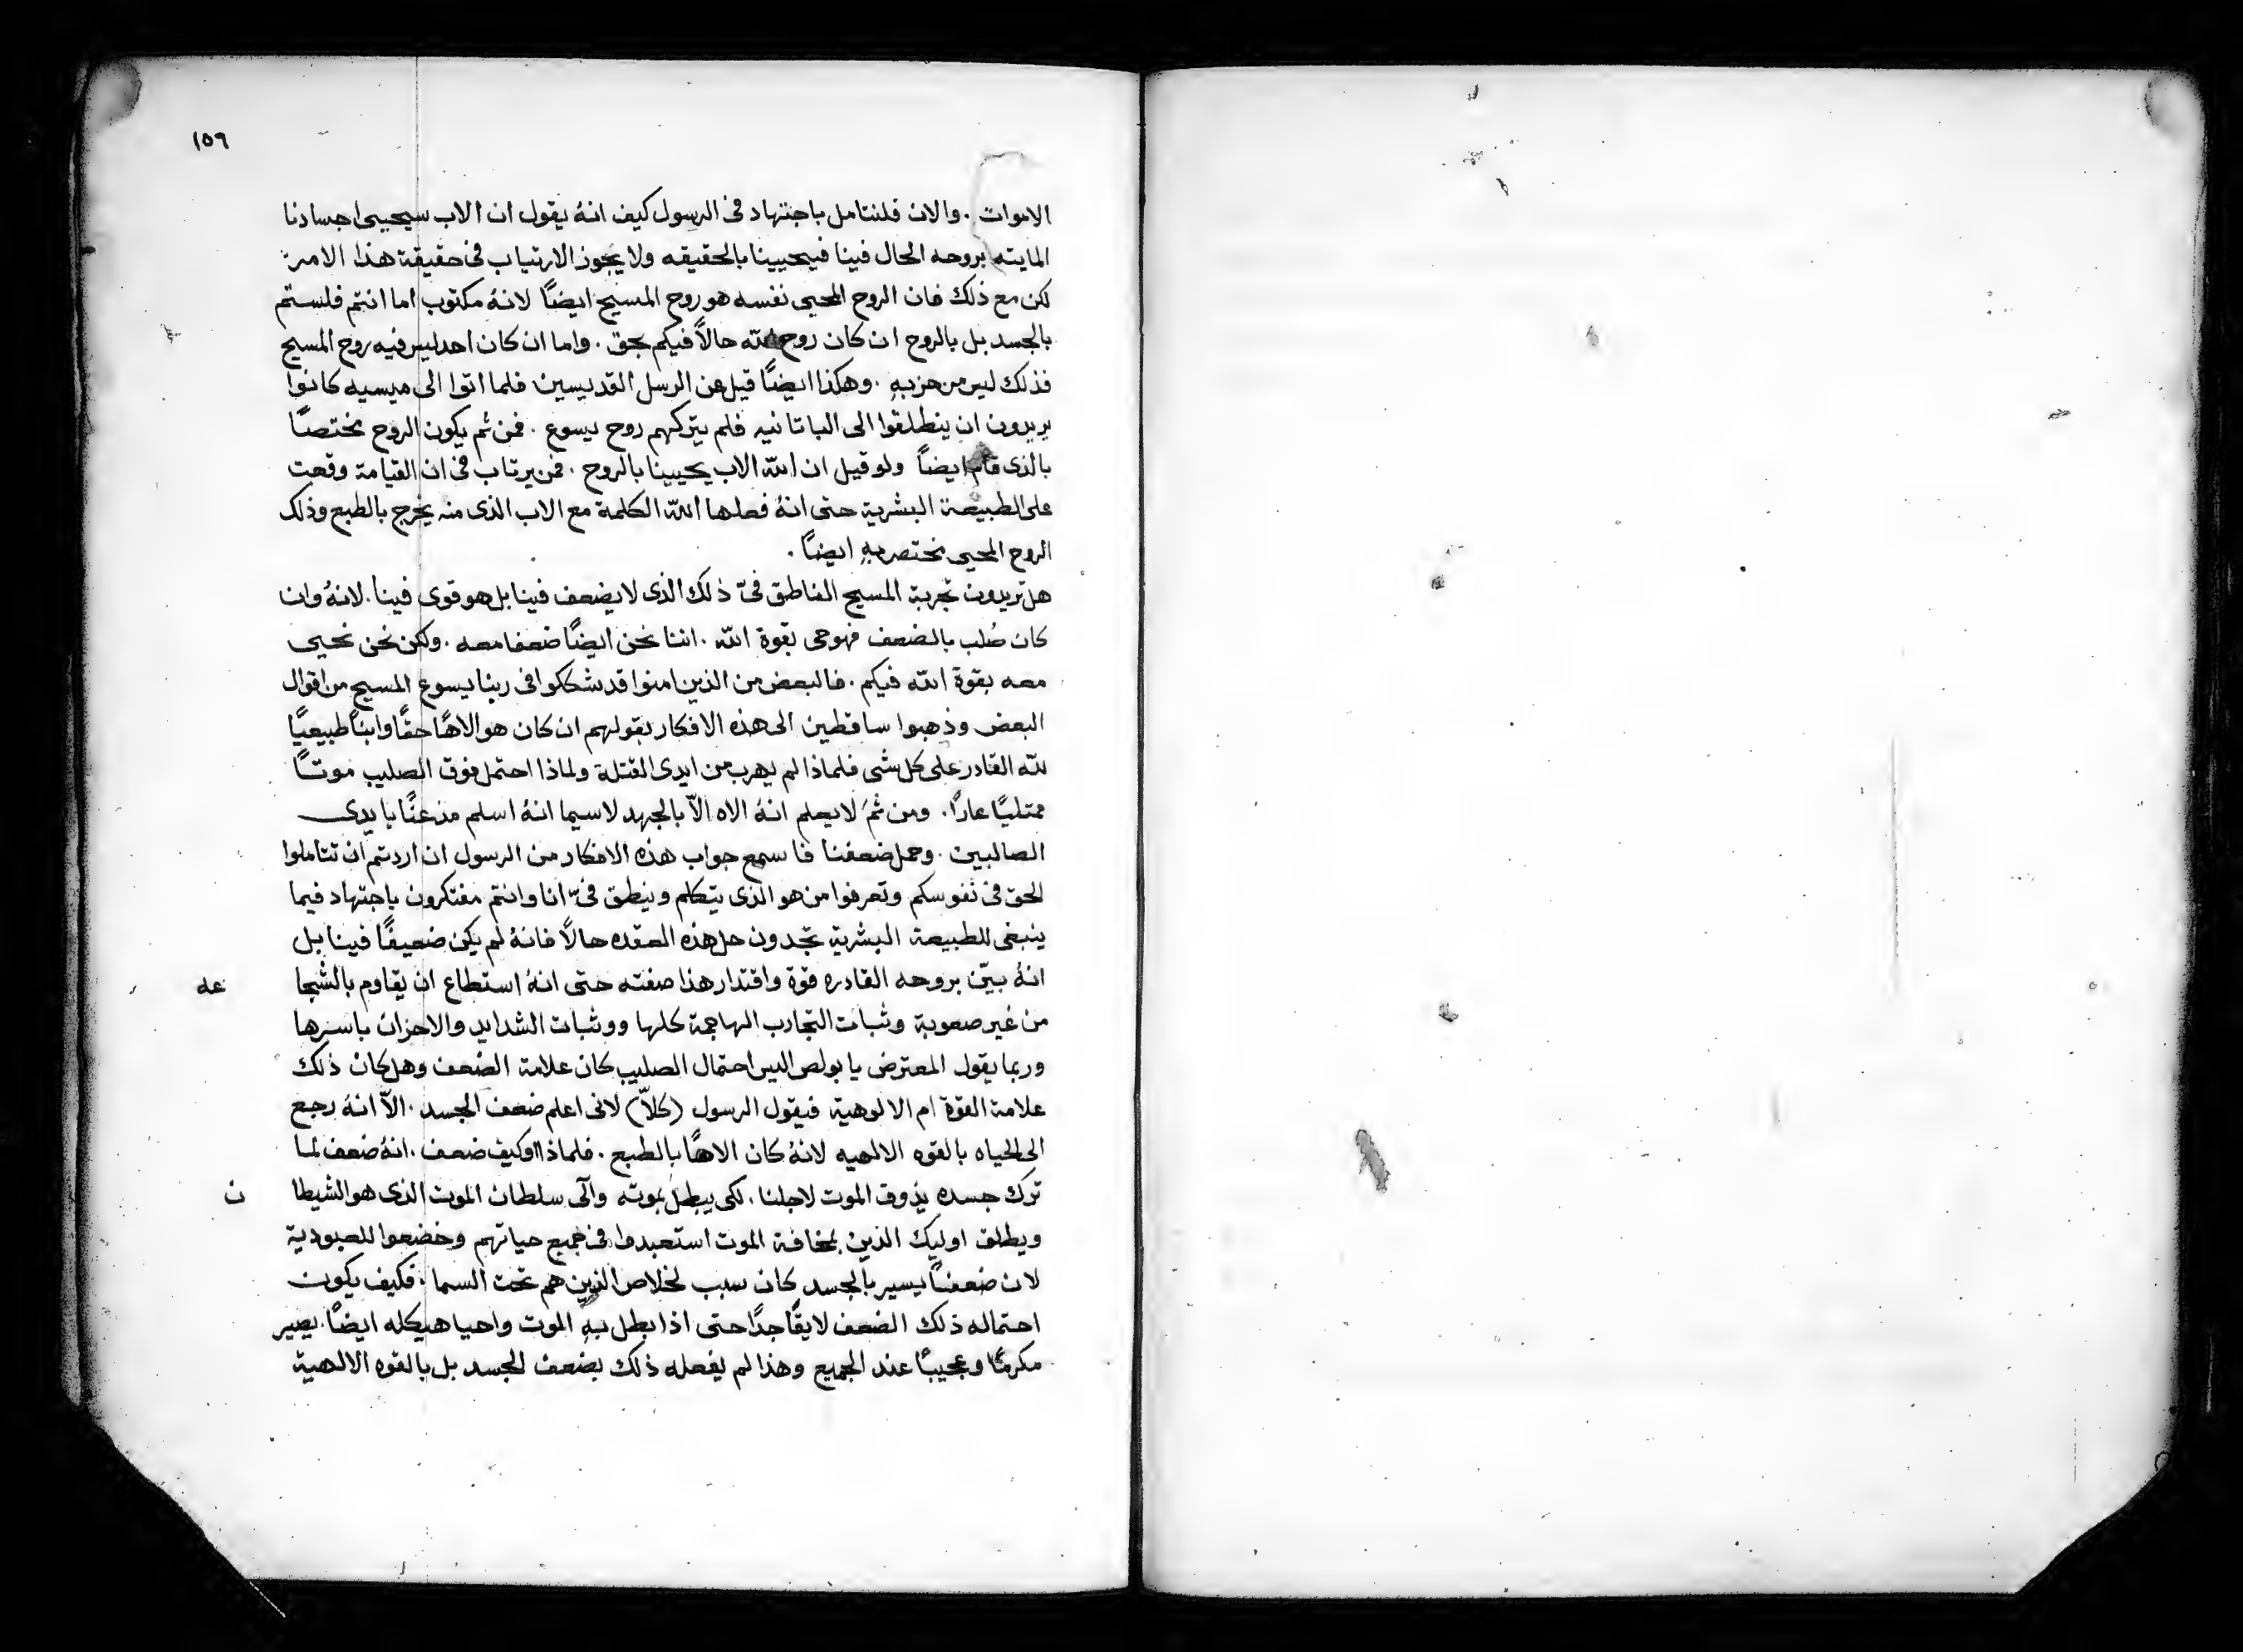 ١٥٩
الاموات . والان فلنتامل باجتهاد فى الرسول كيف انهُ يقول ان الاب سيحيى اجسادنا
المايته بروحه الحال فينا فيحيينا بالحقيقه ولا يجوز الارتياب فى حقيقة هذا الامر
لكن مع ذلك فان الروح المحيى نفسه هو روح المسيح ايضًا لانهُ مكتوب اما انتم فلستم
بالجسد بل بالروح ان كان روح الله حالًا فيكم بحق . واما ان كان احد ليس فيه روح المسيح
فذلك ليس من حزبهِ . وهكذا ايضًا قيل عن الرسل القديسين فلما اتوا الى ميسيه كانوا
يريدون ان ينطلقوا الى الباتانيه فلم يتركهم روح يسوع . فمن ثم يكون الروح مختصًا
بالذى قام ايضاً ولو قيل ان الله الاب يحيينا بالروح . فمن يرتاب فى ان القيامة وقعت
على الطبيعة البشرية حتى انهُ فعلها الله الكلمة مع الاب الذى منه يخرج بالطبع وذلك
الروح المحيى مختص بهِ ايضًا .
هل تريدون تجربة المسيح الناطق فىّ ذلك الذى لا يضعف فينا بل هو قوى فينا . لانهُ وان
كان صُلب بالضعف فهو حى بقوة الله . اننا نحن ايضًا ضعفا معه . ولكن نحن نحيى
معه بقوة الله فيكم . فالبعض من الذين امنوا قد شككوا فى ربنا يسوع المسيح من اقوال
البعض وذهبوا ساقطين الى هذه الافكار بقولهم ان كان هو الاهًا حقًا وابنًا طبيعيًا
لله القادر على كل شى فلماذا لم يهرب من ايدى القتلة ولماذا احتمل فوق الصليب موتًا
ممتليًا عارًا . ومن ثمَ لا يعلم انهُ الاه الّا بالجهد لاسيما انهُ اسلم مذعنًا بايدى
الصالبين . وحمل ضعفنا فاسمع جواب هذه الافكار من الرسول ان اردتم ان تتاملوا
الحق فى نفوسكم وتعرفوا من هو الذى يتكلم وينطق فىّ انا وانتم مفتكرون باجتهاد فيما
ينبغى للطبيعة البشرية تجدون حل هذه العقده حالًا فانهُ لم يكن ضعيفًا فينا بل
انهُ بيّن بروحه القادره قوة واقتدار هذا صفته حتى انهُ استطاع ان يقاوم بالشجا
عه
من غير صعوبة وثبات التجارب الهاجمة كلها ووثبات الشدايد والاحزان باسرها
وربما يقول المعترض يا بولص اليس احتمال الصليب كان علامة الضعف وهل كان ذلك
علامة القوة ام الالوهية فيقول الرسول (كلّا) لانى اعلم ضعف الجسد . الّا انهُ رجع
الى الحياه بالقوه الالهيه لانهُ كان الاهًا بالطبع . فلماذا وكيف ضعف . انهُ ضعف لما
ترك جسده يذوق الموت لاجلنا . لكى يبطل بموته والى سلطان الموت الذى هو الشيطا
ن
ويطلق اوليك الذين بمخافة الموت استعبدوا فى جميع حياتهم وخضعوا للعبودية
لان ضعفًا يسير بالجسد كان سبب لخلاص الذين هم تحت السما . فكيف يكون
احتماله ذلك الضعف لايقًا جدًا حتى اذا بطل بهِ الموت واحيا هيكله ايضًا . يصير
مكرمًا وعجيبًا عند الجميع وهذا لم يفعله ذلك بضعف الجسد بل بالقوه الالهية